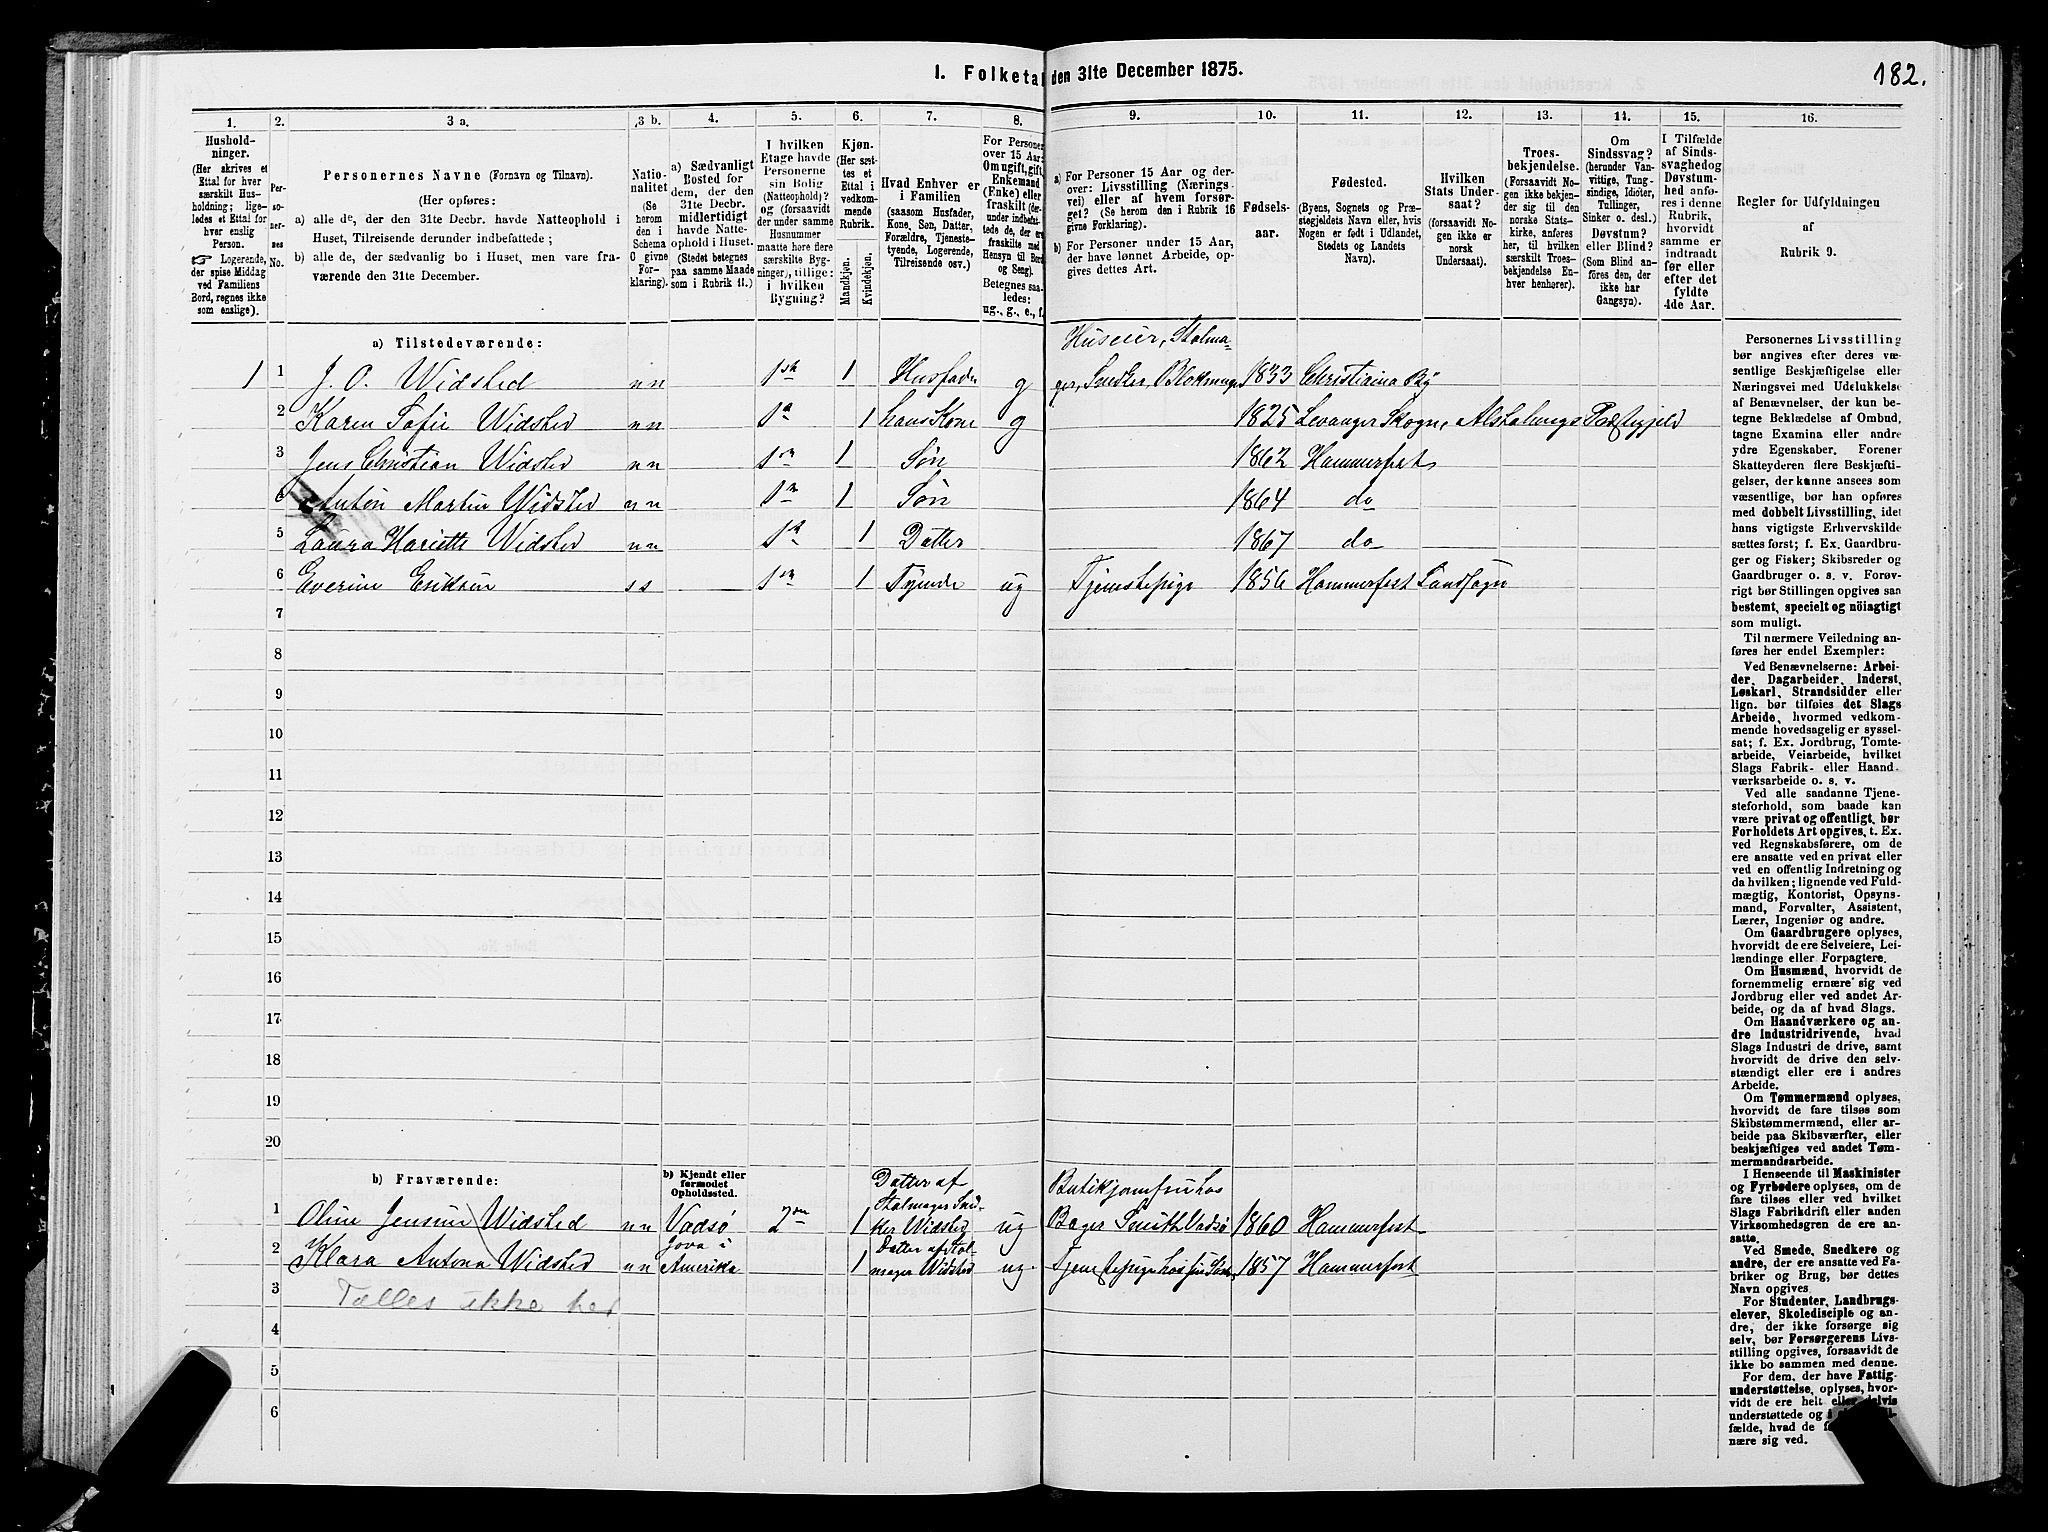 182.
I. Folketal den 31te December 1875.
1. 2. 3 a. 3 b. 4. 5. 6. 7. 8. 9. 10. 11. 12. 13. 14. 15. 16.
Hushold-
ninger.
(Her skrives et
Ettal for hver
særskilt Hus-
holdning; lige-
ledes et Ettal for
hver enslig
Person.
☞ Logerende,
der spise Middag
ved Familiens
Bord, regnes ikke
som enslige).
Per-
so-
ner-
nes
No.
Personernes Navne (Fornavn og Tilnavn).
(Her opføres:
a) alle de, der den 31te Decbr. havde Natteophold i
Huset, Tilreisende derunder indbefattede;
b) alle de, der sædvanlig bo i Huset, men vare fra-
værende den 31te December.
Natio-
nalitet
(Se
herom
den i
Schema
O givne
For-
klaring).
a) Sædvanligt
Bosted for
dem, der den
31te Decbr.
midlertidigt
havde Natte-
ophold i Huset.
(Stedet betegnes
paa samme Maade
som i Rubrik 11.)
I hvilken
Etage havde
Personerne
sin Bolig
(Natteophold)?
og (forsaavidt
der under samme
Husnummer
maatte høre flere
særskilte Byg-
ninger), tillige:
i hvilken
Bygning?
Kjøn.
(Her sæt-
tes et
Ettal i
vedkom-
mende
Rubrik.
Mandkjøn.
Kvindekjøn.
Hvad Enhver er
i Familien
(saasom Husfader,
Kone, Søn, Datter,
Forældre, Tjeneste-
tyende, Logerende,
Tilreisende osv.)
For Personer
over 15 Aar:
Om ugift, gift,
Enkemand
(Enke) eller
fraskilt (der-
under indbefat-
tede de, der ere
fraskilte med
Hensyn til Bord
og Seng).
Betegnes saa-
ledes:
ug., g., e., f.
a) For Personer 15 Aar og der-
over: Livsstilling (Nærings-
vei) eller af hvem forsør-
get? (Se herom den i Rubrik 16
givne Forklaring).
b) For Personer under 15 Aar,
der have lønnet Arbeide, op-
gives dettes Art.
Fødsels-
aar.
Fødested.
(Byens, Sognets og Præ-
stegjeldets Navn eller, hvis
Nogen er født i Udlandet,
Stedets og Landets
Navn).
Hvilken
Stats Under-
saat?
(forsaavidt No-
gen ikke er
norsk
Undersaat).
Troes-
bekjendelse.
(Forsaavidt No-
gen ikke bekjen-
der sig til den
norske Stats-
kirke, anføres
her, til hvilken
særskilt Troes-
bekjendelse En-
hver henhører).
Om
Sindssvag?
(herunder Van-
vittige, Tung-
sindige, Idioter,
Tullinger,
Sinker o. desl.)
Døvstum?
eller Blind?
(som Blind an-
føres den, der
ikke har
Gangsyn).
I Tilfælde
af Sinds-
svaghed og
Døvstum-
hed anfø-
res i denne
Rubrik,
hvorvidt
samme er
indtraadt
før eller
efter det
fyldte
4de Aar.
Regler for Udfyldningen
af
Rubrik 9.
a) Tilstedeværende:
Huseier, Stolma-
1 1 J. O. Widsted nn 1ste 1 Husfader g ger, Snedker, Blokmager 1833 Christiania By
2 Karen Sofie Widsted nn 1 1 hans Kone g 1825 Levanger Skogn, Alstahougs Præstegjeld
3 Jens Christian Widsted nn 1 1 Søn 1862 Hammerfest
4 Anton Martin Widsted nn 1 1 Søn 1864 do
5 Laura Hariette Widsted nn 1 1 Datter 1867 do
6 Everine Eriksen ss 1 1 Tyende ug Tjenestepige 1856 Hammerfest Landsogn
7
8
9
10
11
12
13
14
15
16
17
18
19
20
b) Fraværende:
b) Kjendt eller
formodet
Opholdssted.
Datter af
Stolmager Sned-
ker Widsted
Butikjomfru hos
1 Oline Jensine Widsted nn Vadsø 2 1 ug Bager Smith Vadsø 1860 Hammerfest
2 Klara Antona Widsted nn Iova i Amerika 1 Datter af Stol-
mager Widsted ug. Tjenestepige hos 1857 Hammerfest
3 Tælles ikke her
4
5
6
Personernes Livsstilling
bør angives efter deres væ-
sentlige Beskjæftigelse eller
Næringsvei med Udelukkelse
af Benævnelser, der kun be-
tegne Beklædelse af Ombud,
tagne Examina eller andre
ydre Egenskaber. Forener
Skatteyderen flere Beskjæfti-
gelser, der kunne ansees som
væsentlige, bør han opføres
med dobbelt Livsstilling, idet
hans vigtigste Erhvervskilde
sættes først; f. Ex. Gaardbru-
ger og Fisker; Skibsreder og
Gaardbruger o. s. v. Forøv-
rigt bør Stillingen opgives saa
bestemt, specielt og nöiagtigt
som muligt.
Til nærmere Veiledning an-
føres her endel Exempler:
Ved Benævnelserne: Arbei-
der, Dagarbeider, Inderst,
Løskarl, Strandsidder eller
lign. bør tilføies det Slags
Arbeide, hvormed vedkom-
mende hovedsagelig er syssel-
sat; f. Ex. Jordbrug, Tomte-
arbeide, Veiarbeide, hvilket
Slags Fabrik- eller Haand-
værksarbeide o. s. v.
Ved alle saadanne Tjene-
steforhold, som baade kan
være privat og offentligt, bør
Forholdets Art opgives, t. Ex.
ved Regnskabsførere, om de
ere ansatte ved en privat eller
ved en offentlig Indretning og
da hvilken; lignende ved Fuld-
mægtig, Kontorist, Opsyns-
mand, Forvalter, Assistent,
Lærer, Ingeniør og andre.
Om Gaardbrugere oplyses,
hvorvidt de ere Selveiere, Lei-
lændinge eller Forpagtere.
Om Husmænd, hvorvidt de
fornemmelig ernære sig ved
Jordbrug eller ved andet Ar-
beide, og da af hvad Slags.
Om Haandværkere og an-
dre Industridrivende, hvad
Slags Industri de drive, samt
hvorvidt de drive den selv-
stændigt eller ere i andres
Arbeide.
Om Tømmermænd oplyses,
hvorvidt de fare tilsøs som
Skibstømmermænd, eller ar-
beide paa Skibsværfter, eller
beskjæftiges ved andet Tøm-
mermandsarbeide.
I Henseende til Maskinister
og Fyrbødere oplyses, om de
fare tilsøs eller ved hvilket
Slags Fabrikdrift eller anden
Virksomhedsgren de ere an-
satte.
Ved Smede, Snedkere og
andre, der ere ansatte ved Fa-
briker og Brug, bør dettes
Navn opgives.
For Studenter, Landbrugs-
elever, Skoledisciple og an-
dre, der ikke forsørge sig
selv, bør Forsørgerens Livs-
stilling opgives, forsaavidt de
ikke bo sammen med denne.
For dem, der have Fattig-
understøttelse, oplyses, hvor-
vidt de ere helt eller delvis
understøttede og i
fælde, hvad de
nære sig ved.